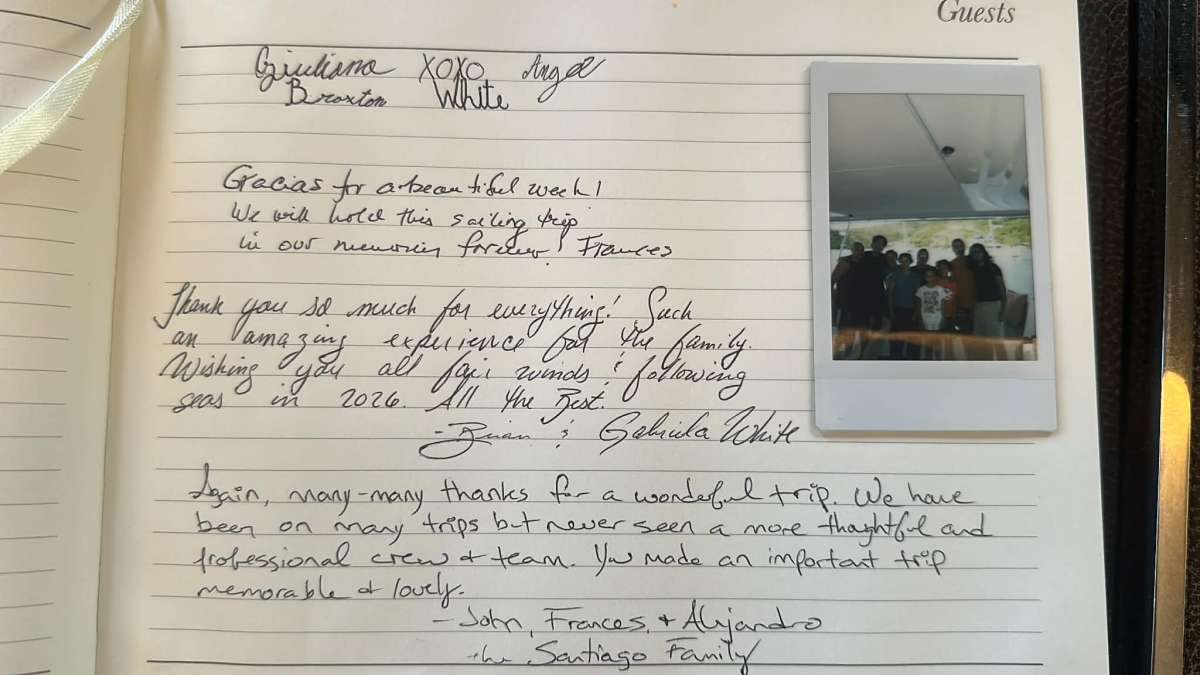 Guests
Giuliana XOXO Angel
Braxton White
Gracias for a beautiful week!
We will hold this sailing trip
in our memories forever! Frances
Thank you so much for everything! Such
an amazing experience for the family.
Wishing you all fair winds & following
seas in 2026. All the Best.
- Brian & Gabriela White
Again, many-many thanks for a wonderful trip. We have
been on many trips but never seen a more thoughtful and
professional crew & team. You made an important trip
memorable & lovely.
- John, Frances, & Alejandro
the Santiago Family